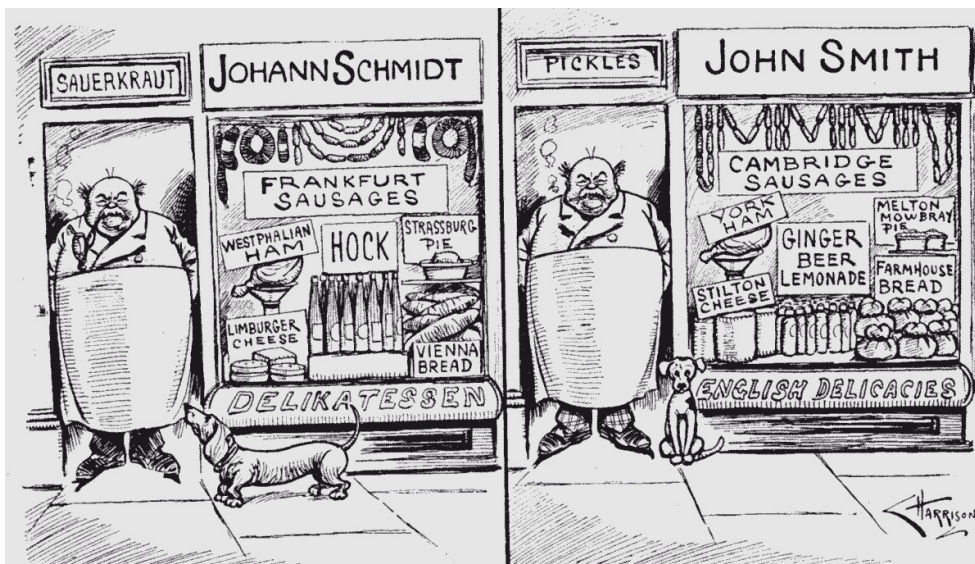 SAUERKRAUT
JOHANN SCHMIDT
FRANKFURT
SAUSAGES
WESTPHALIAN
HAM
HOCK
STRASSBURG
PIE
LIMBURGER
CHEESE
VIENNA
BREAD
DELIKATESSEN
PICKLES
JOHN SMITH
CAMBRIDGE
SAUSAGES
YORK
HAM
GINGER
BEER
LEMONADE
MELTON
MOWBRAY
PIE
STILTON
CHEESE
FARMHOUSE
BREAD
ENGLISH DELICACIES
CHARRISON